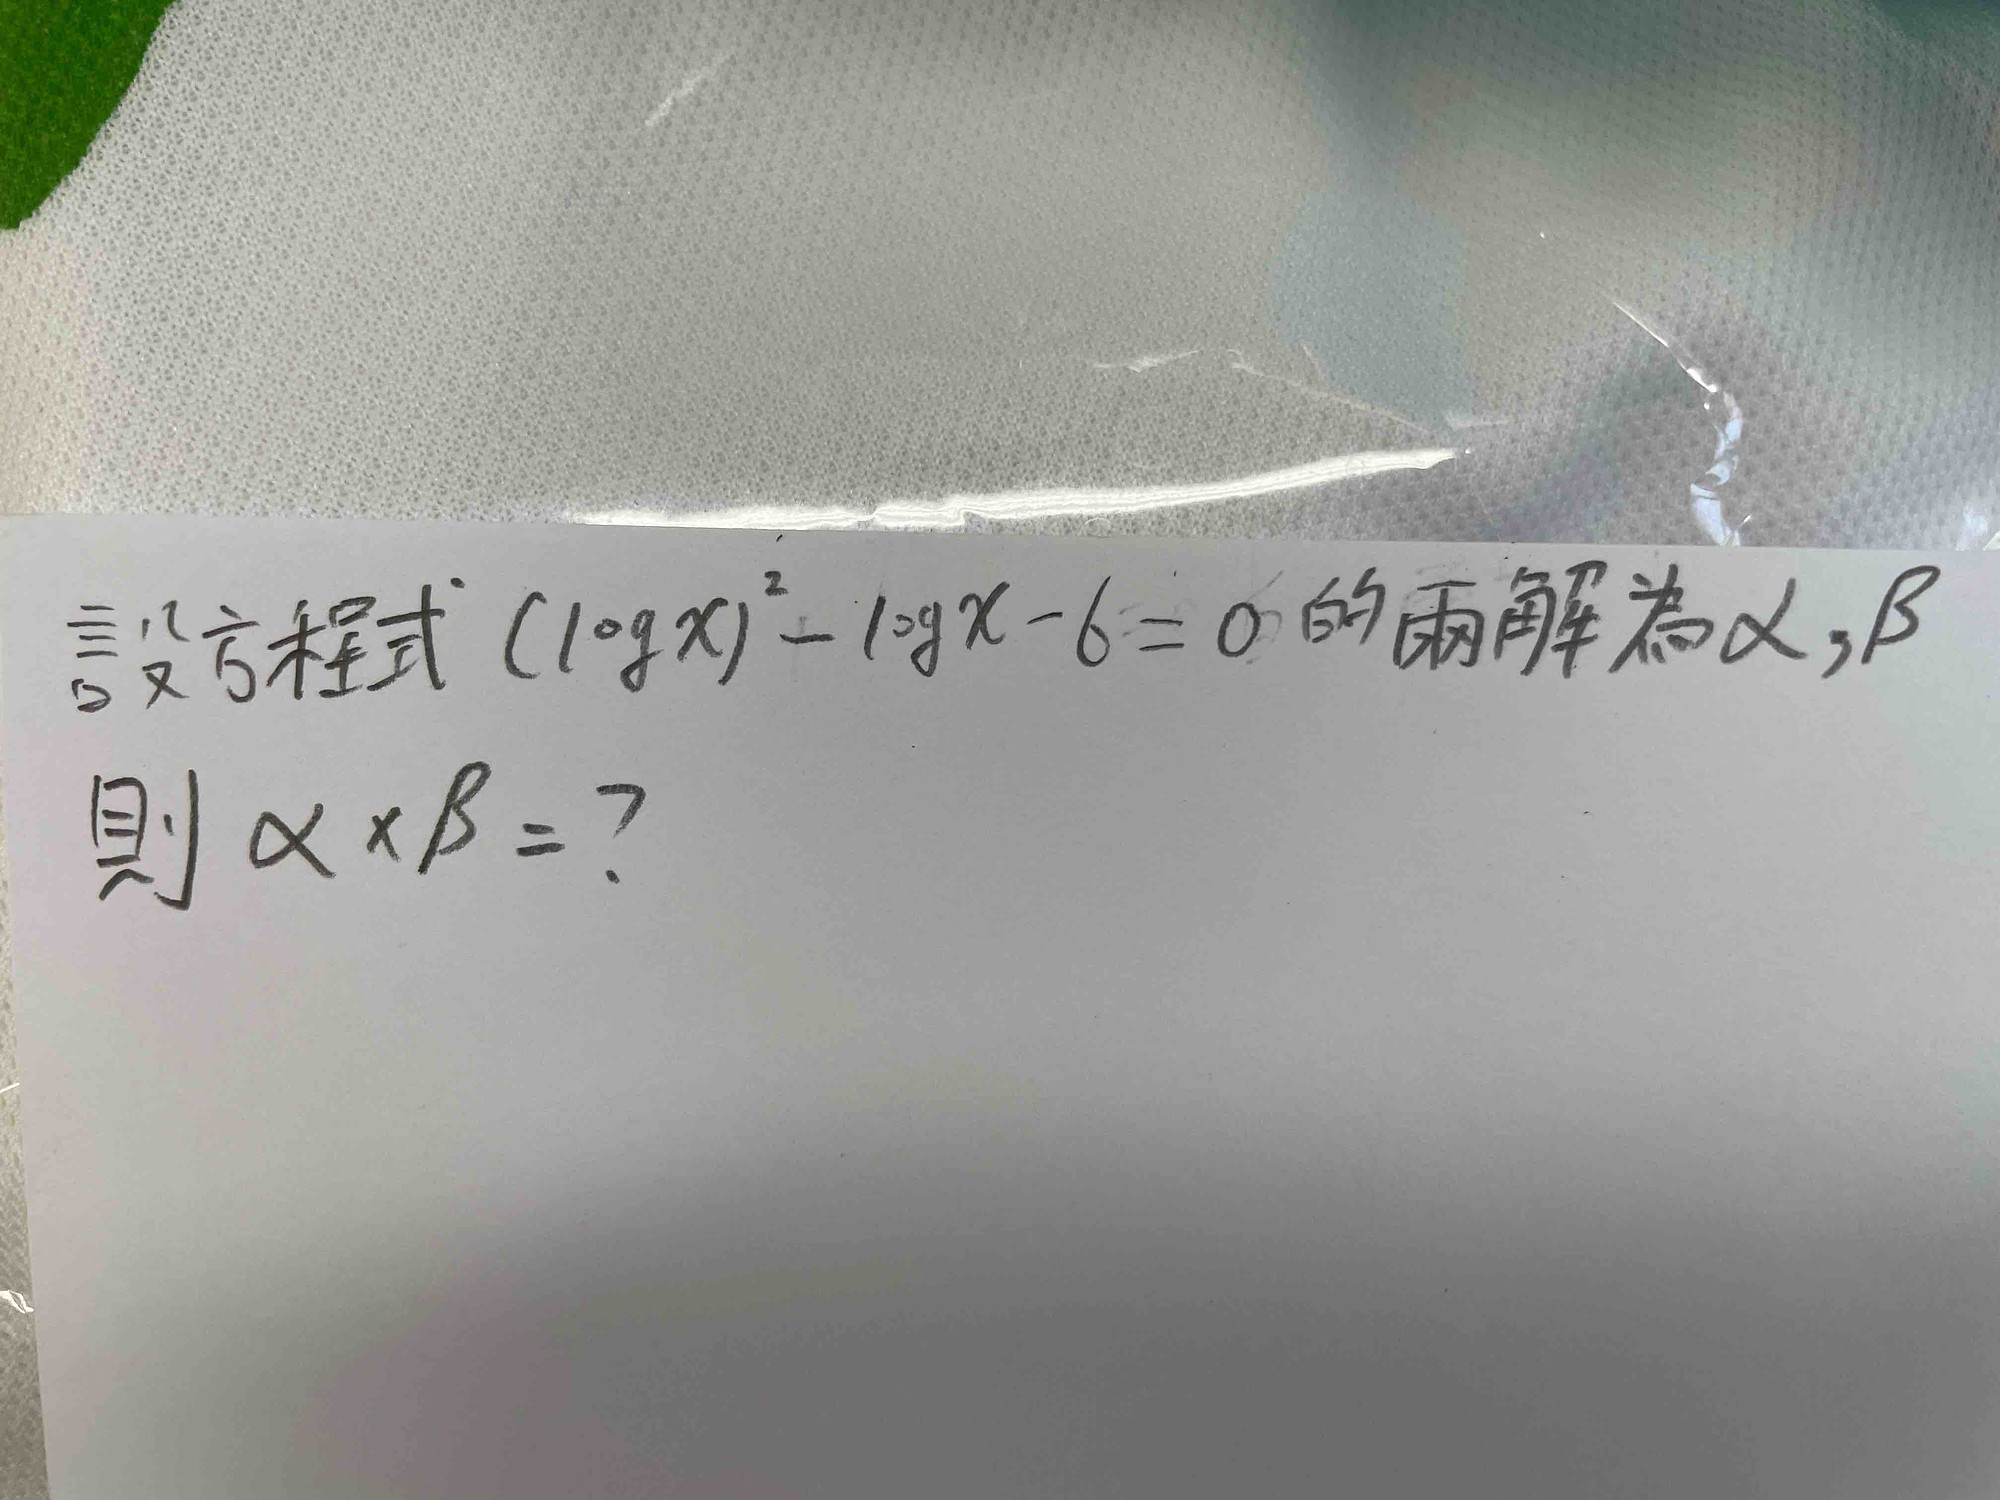 設方程式 (log x)² - log x - 6 = 0 的兩解為 α, β
則 α × β = ?